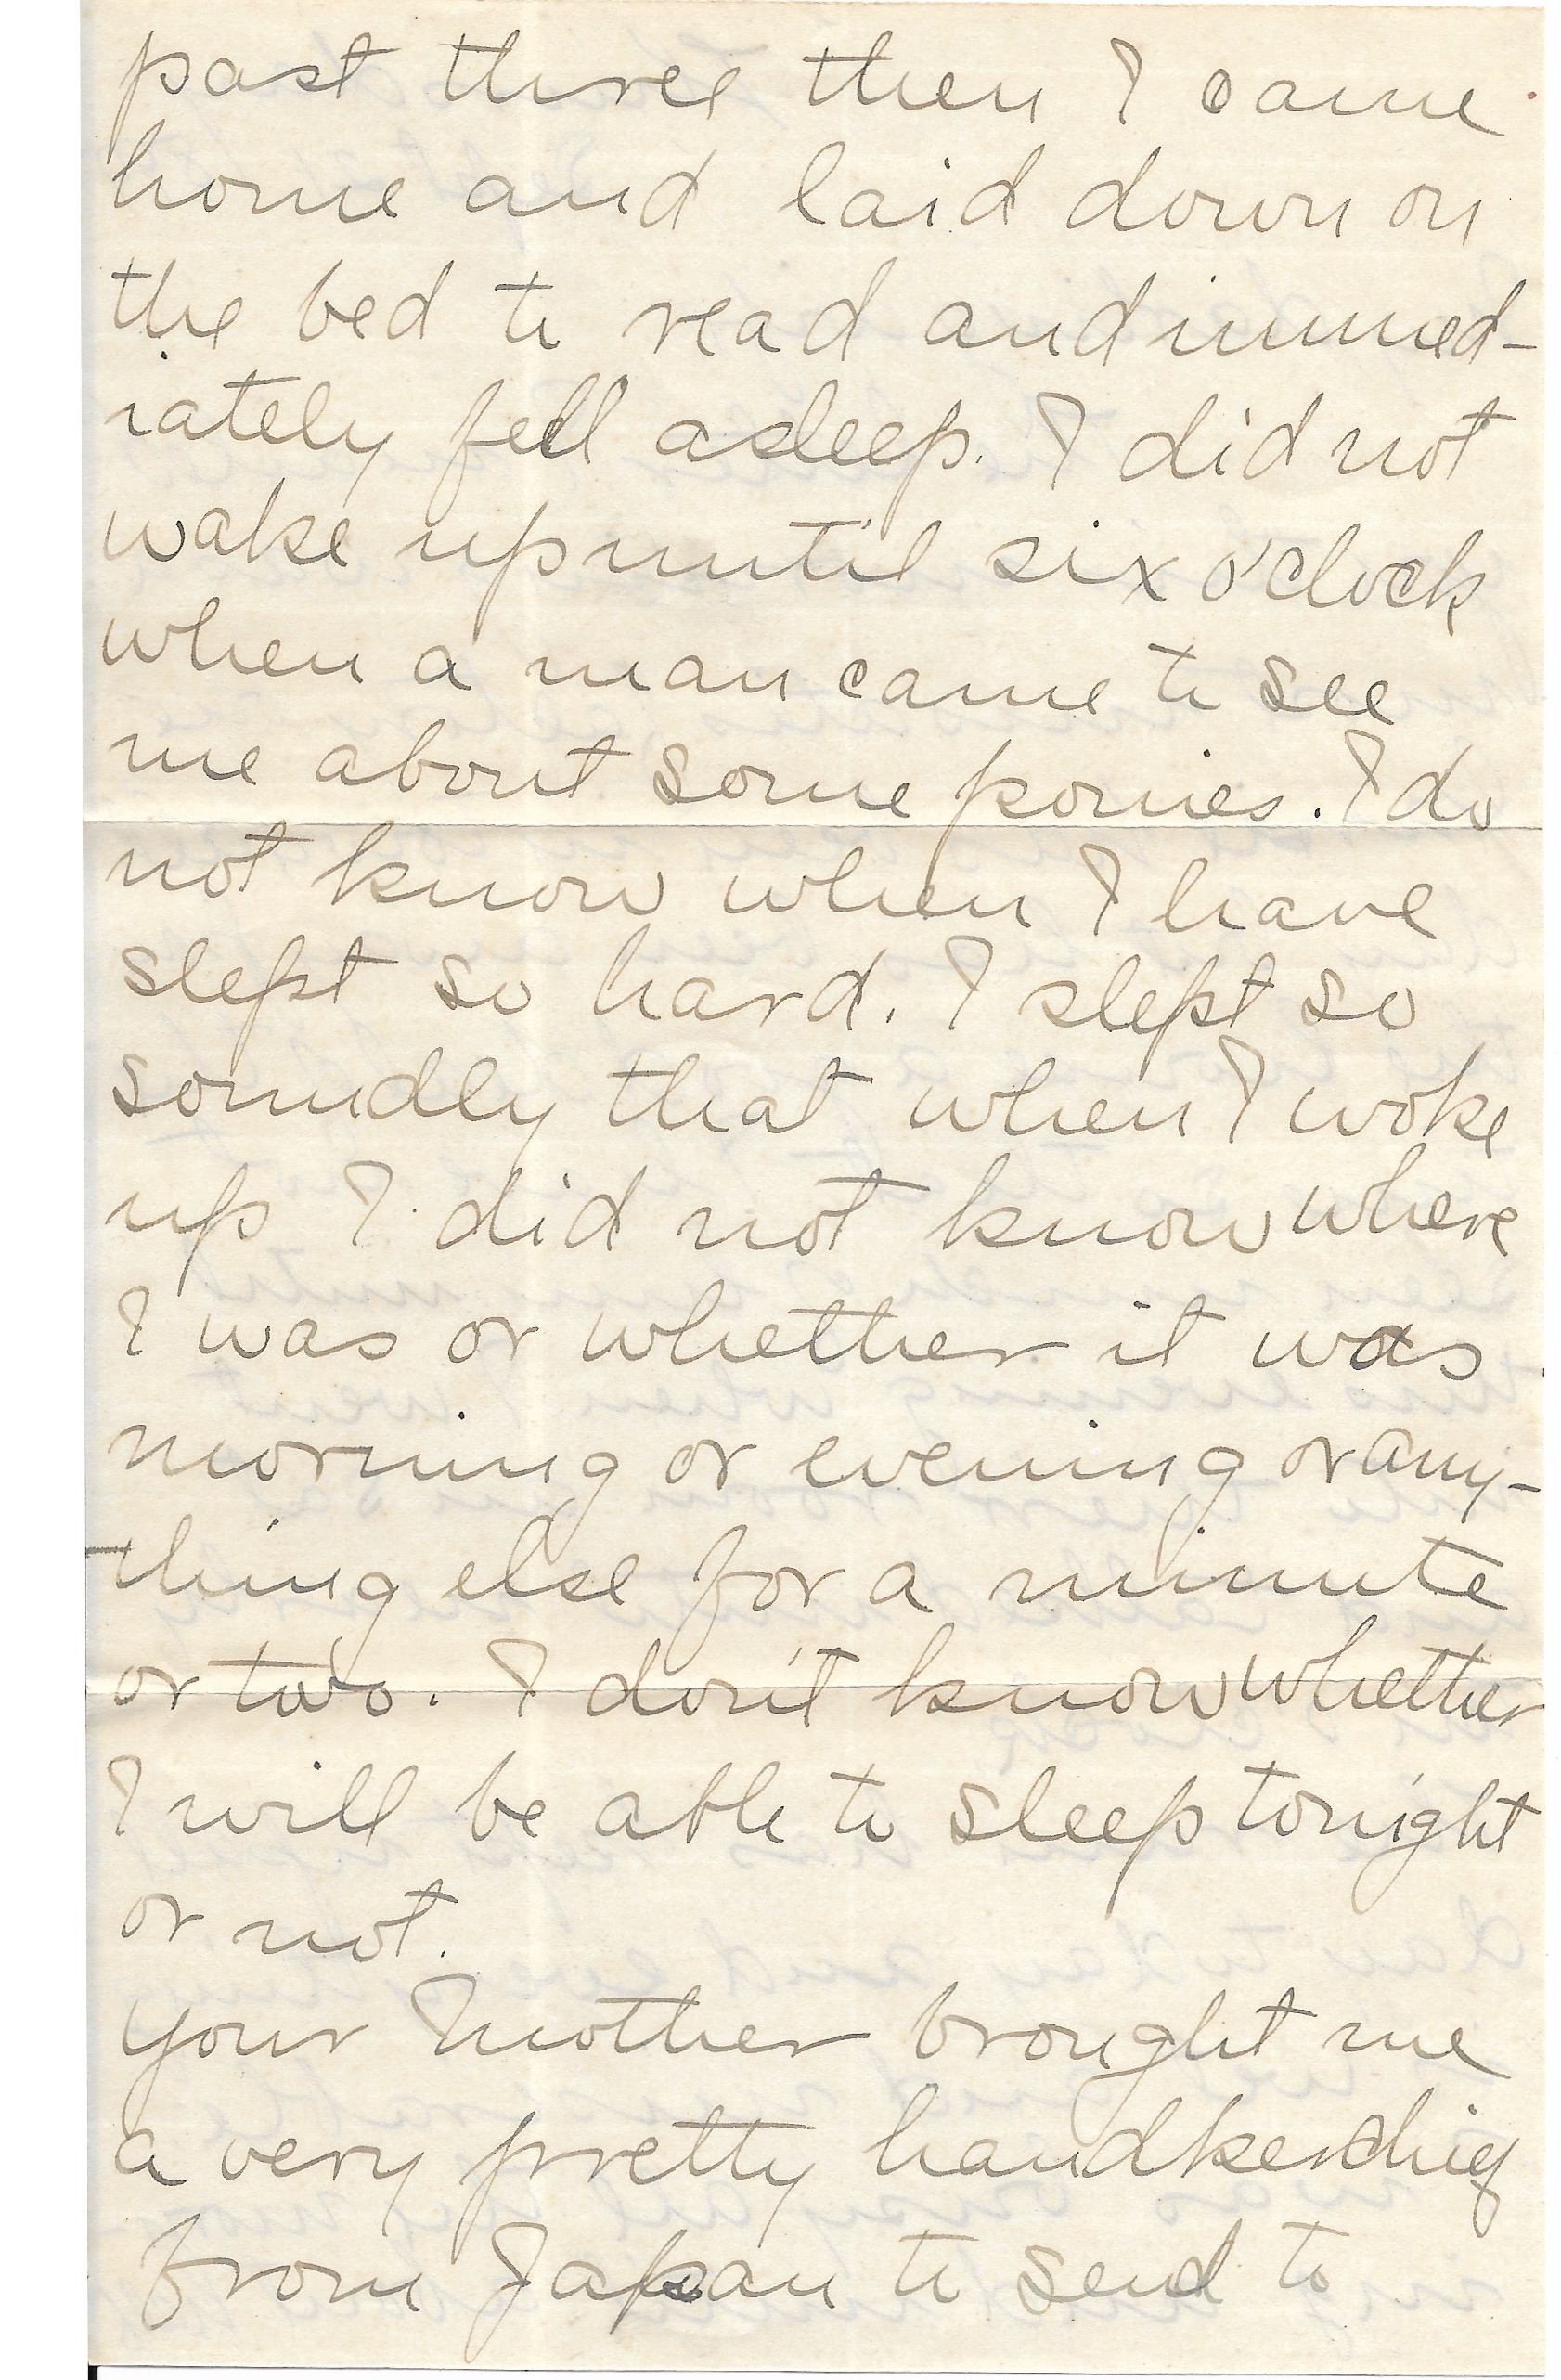 past three then I came
home and laid down on
the bed to read and immed-
iately fell asleep. I did not
wake up until six o'clock
when a man came to see
me about some ponies. I do
not know when I have
slept so hard. I slept so
soundly that when I woke
up I did not know where
I was or whether it was
morning or evening or any-
thing else for a minute
or two. I don't know whether
I will be able to sleep tonight
or not.
Your Mother brought me
a very pretty handkerchief
from Japan to send to